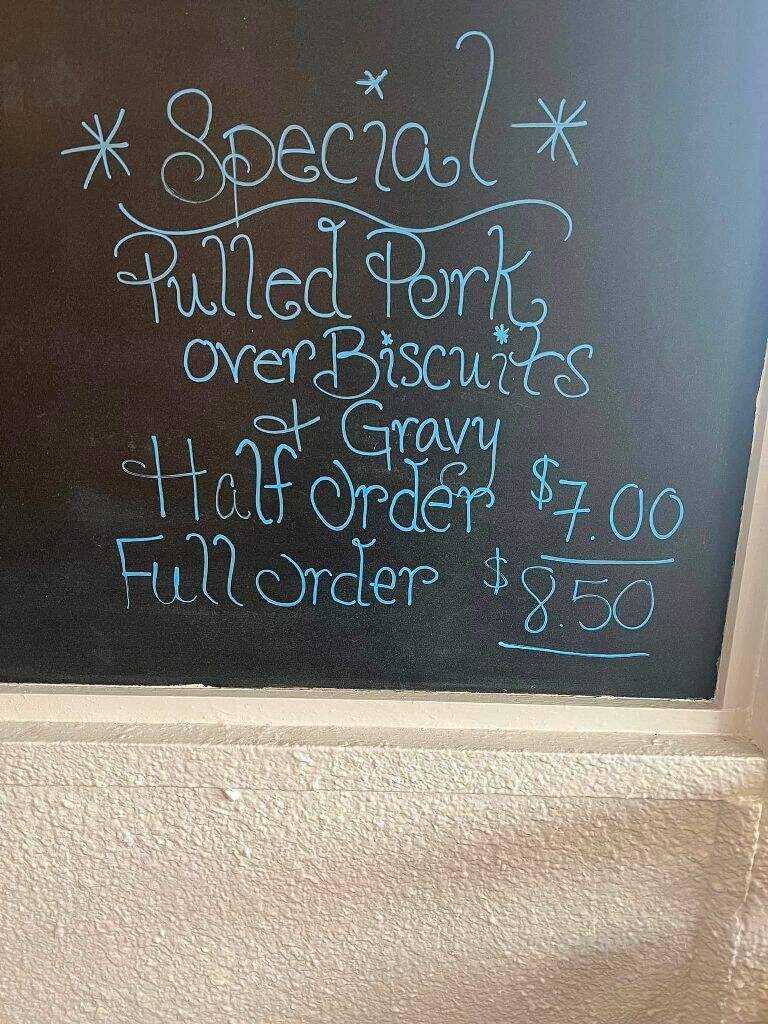 * Special *
Pulled Pork
over Biscuits
+ Gravy
Half order $7.00
Full order $8.50